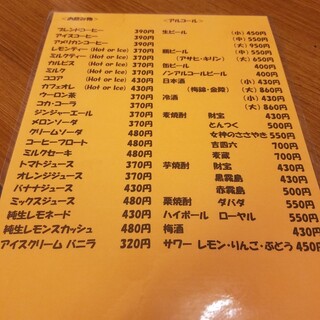 <お飲み物>
ブレンドコーヒー 390円
アイスコーヒー 390円
アメリカンコーヒー 390円
レモンティー (Hot or Ice) 370円
ミルクティー (Hot or Ice) 370円
カルピス (Hot or Ice) 370円
ミルク (Hot or Ice) 370円
ココア (Hot or Ice) 430円
カフェオレ (Hot or Ice) 430円
ウーロン茶 370円
コカ・コーラ 370円
ジンジャーエール 370円
メロンソーダ 370円
クリームソーダ 480円
コーヒーフロート 480円
ミルクセーキ 480円
トマトジュース 370円
オレンジジュース 370円
バナナジュース 430円
ミックスジュース 480円
純生レモネード 430円
純生レモンスカッシュ 480円
アイスクリーム バニラ 320円
<アルコール>
生ビール (小) 450円
(中) 550円
(大) 860円
瓶ビール (中) 550円
(アサヒ・キリン) (大) 650円
缶ビール 400円
ノンアルコールビール 400円
日本酒 (小) 430円
(梅錦・金陵) (大) 860円
冷酒 (小) 430円
(大) 860円
麦焼酎 財宝 430円
とんつく 500円
女神のささやき 550円
吉四六 700円
麦蔵 700円
芋焼酎 財宝 430円
黒霧島 500円
赤霧島 500円
栗焼酎 ダバダ 550円
ハイボール ローヤル 550円
梅酒 430円
サワー レモン・りんご・ぶどう 450円